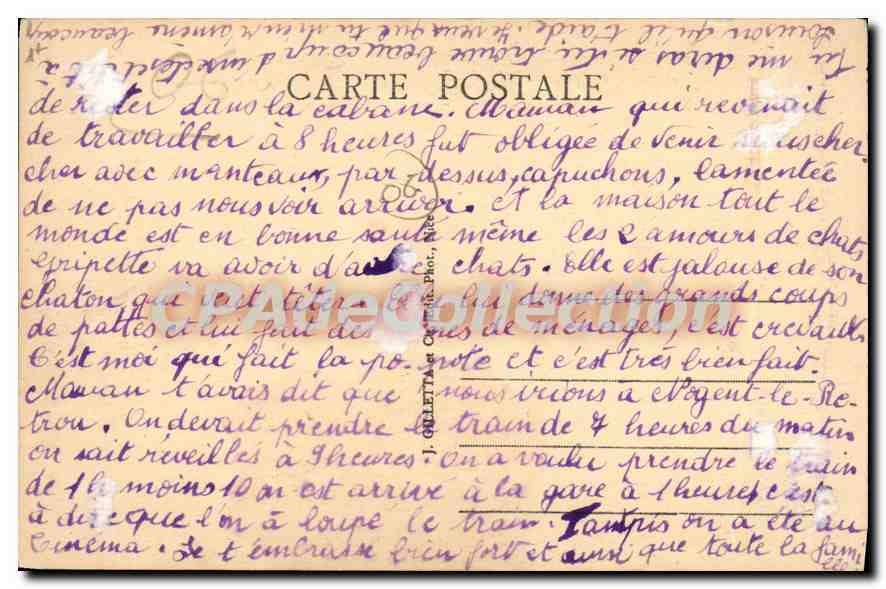 CARTE POSTALE
de rester dans la cabane. Maman qui revenait
de travailler à 8 heures fut obligée de venir nous cher
cher avec manteaux, par dessus, capuchons, lamentée
de ne pas nous voir arriver. et la maison tout le
monde est en bonne santé même les 2 amours de chats
Gripette va avoir d'autre chats. Elle est jalouse de son
chaton qui veut têter elle lui donne des grands coups
de pattes et lui fait des de ménages, c'est crevant
C'est moi qui fait la popote et c'est très bien fait.
Maman t'avais dit que nous irions a Nogent-le-Ro-
trou. On devait prendre le train de 7 heures du matin
on sait réveillés à 9 heures. On a voulu prendre le train
de 1h moins 10 on est arrivé à la gare à 1 heure, c'est
à dire que l'on à loupé le train. Tampis on a été au
Cinéma. Je t'embrasse bien fort et aussi que toute la fami
lle
Tu me diras si lui trouve beaucoup d'
qu'il t'aide. Je veux que tu amène beaucoup
J. GILLETTA et Cie, Edit. Phot., Nice
20
CPA de Collection